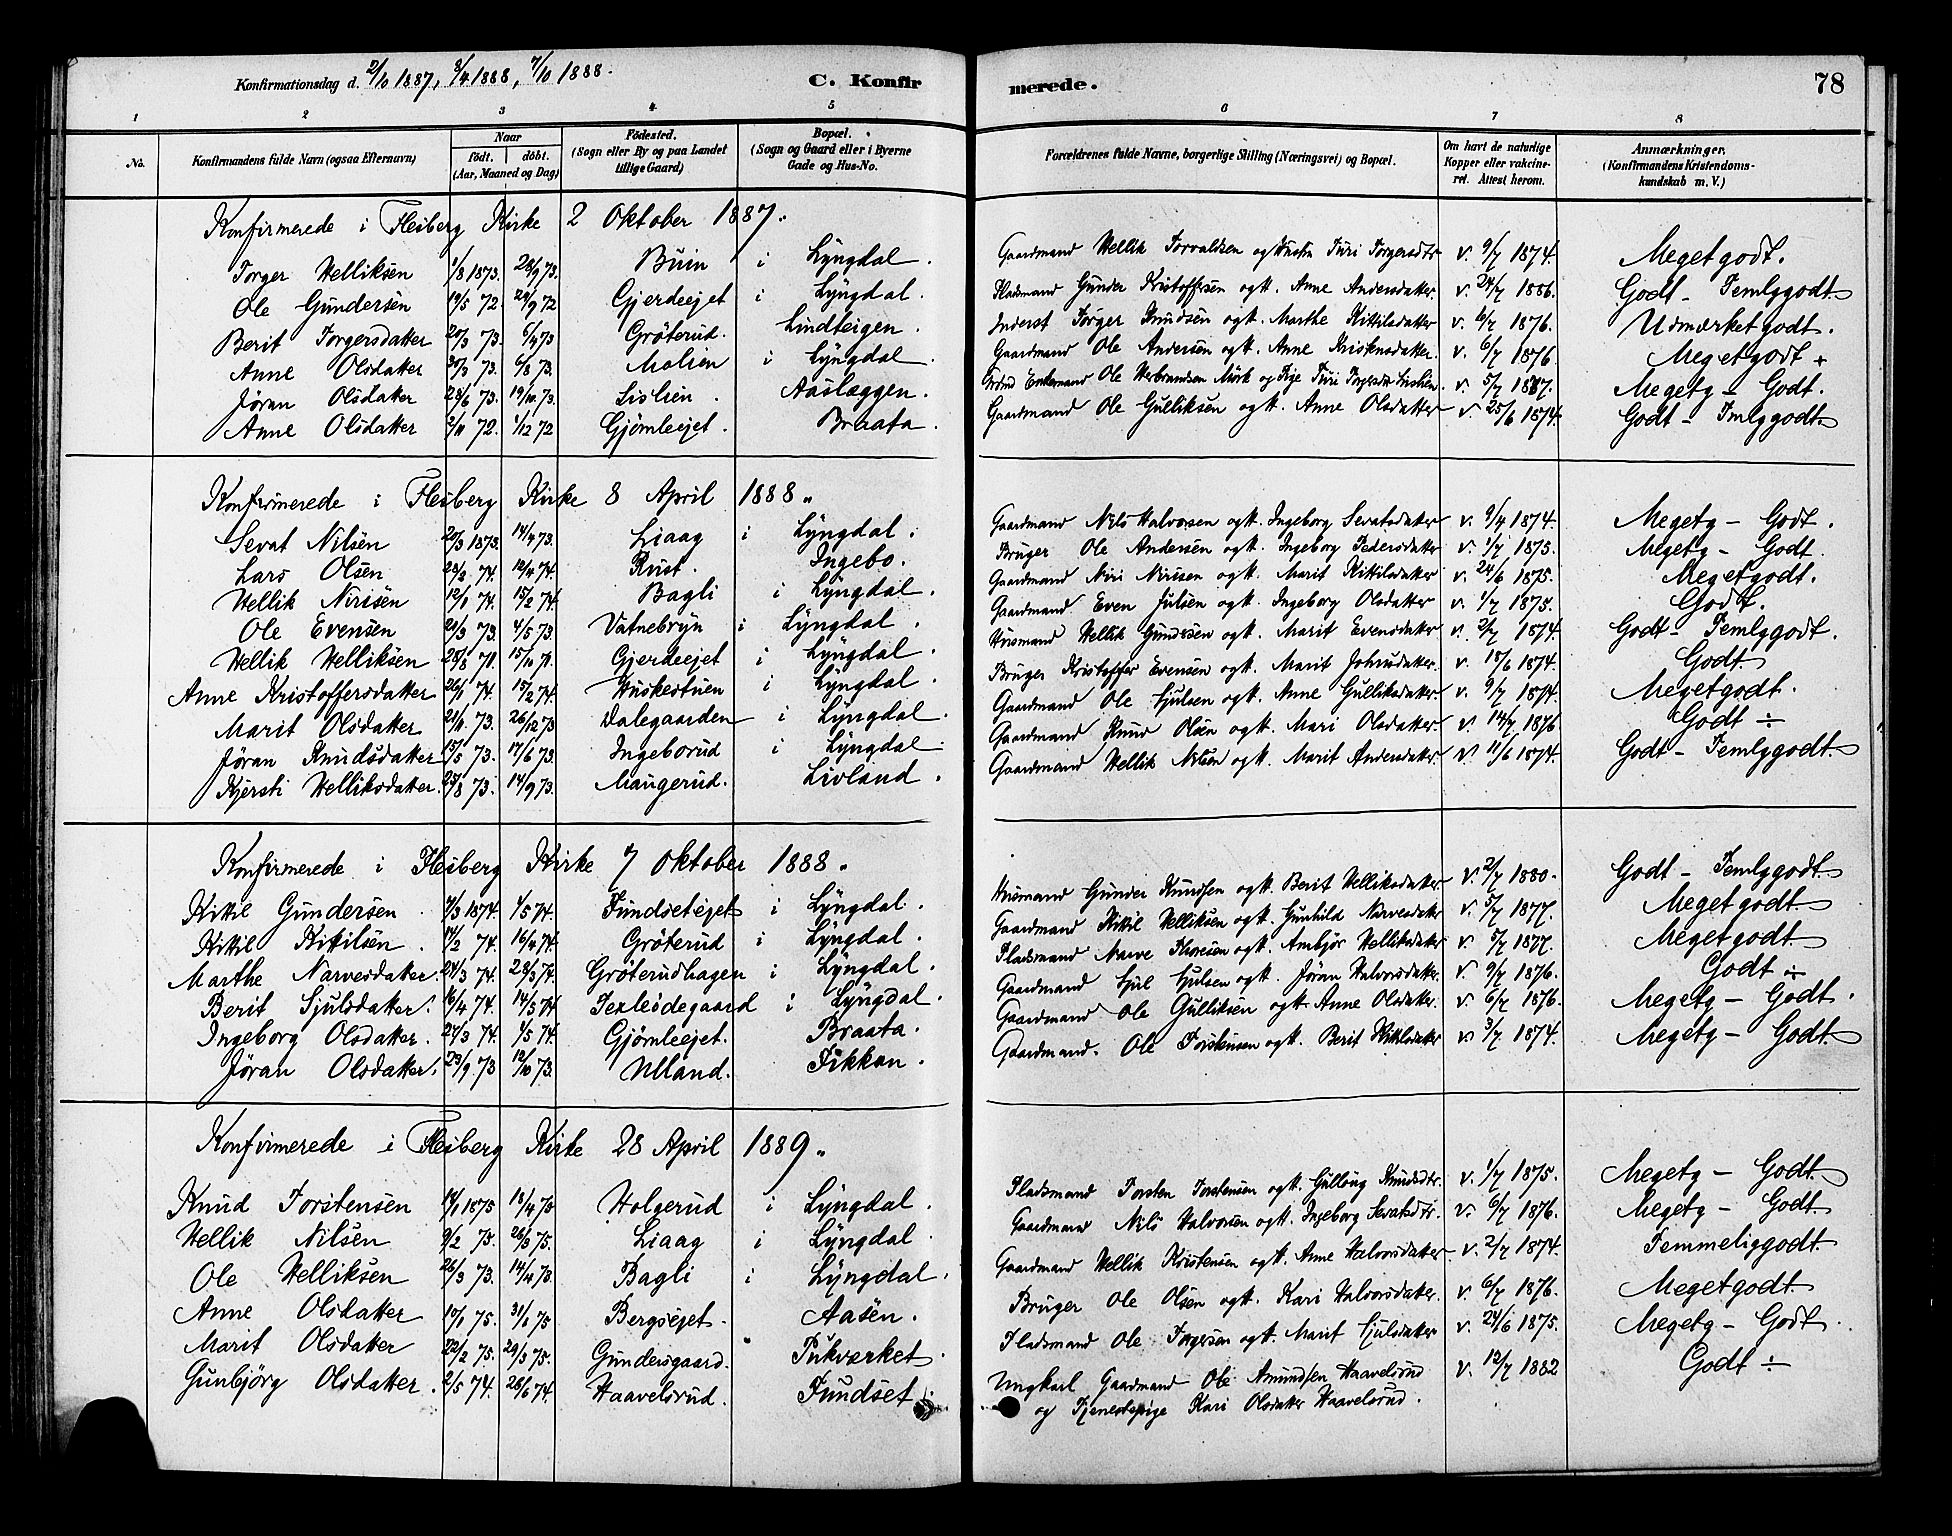 Konfirmationsdag d. 2/10 1887, 8/4 1888, 7/10 1888.
C. Konfirmerede.
78
1 2 3 4 5 6 7 8
No.
Konfirmandens fulde Navn (ogsaa Efternavn)
Naar
födt. döbt.
(Aar, Maaned og Dag)
Födested.
(Sogn eller By og paa Landet
tillige Gaard)
Bopæl.
(Sogn og Gaard eller i Byerne
Gade og Hus-No.
Forældrenes fulde Navne, borgerlige Stilling (Næringsvei) og Bopæl.
Om havt de naturlige
Kopper eller vakcine-
ret. Attest herom.
Anmærkninger.
(Konfirmandens Kristendoms-
kundskab m. V.)
Konfirmerede i Flesberg Kirke 2 Oktober 1887.
Torger Helliksen 1/8 1873. 28/9 73. Buin i Lyngdal. Gaardmand Hellik Torvaldsen og Hustru Turi Torgersdtr v. 9/7 1874. Megetgodt.
Ole Gundersen 19/5 72 29/9 72 Gjerdeejet i Lyngdal. Pladsmand Gunder Kristoffersen og H. Anne Andersdatter. v. 24/7 1886. Godt - Temlggodt
Berit Torgersdatter 20/3 73. 6/4 73 Gröterud. Lindteigen. Inderst Torger Knudsen og H. Marthe Kittilsdatter v. 6/7 1876. Udmærketgodt.
Anne Olsdatter 30/3 73. 6/8 73. Molien i Lyngdal. Gaardmand Ole Andersen og H. Anne Kristensdatter. v. 6/7 1876. Megetgodt +
Jöran Olsdatter 28/6 73. 19/10 73. Lislien. Aaslæggen. Enkemand Ole Herbrandsen Mörk og Pige Turi v. 5/7 1887. Megetg - Godt.
Anne Olsdatter 2/11 72. 1/12 72 Gjömleejet. Braata. Gaardmand Ole Gulliksen og H. Anne Olsdatter v 25/6 1874. Godt - Tmlggodt
Konfirmerede i Flesberg Kirke 8 April 1888.
Sevat Nilsen 20/3 1873. 14/4 73. Liaag i Lyngdal. Gaardmand Nils Halvorsen og H. Ingeborg Sevatsdatter v. 9/4 1874. Megetg - Godt.
Lars Olsen 23/2 74. 12/4 74. Rust. Ingebo. Bruger Ole Andersen og H. Ingeborg Pedersdatter v. 1/7 1875. Megetg - Godt.
Hellik Nirisen 12/1 74. 15/2 74. Bagli i Lyngdal. Gaardmand Niri Nirisen og H. Marit Kittilsdatter v. 24/6 1875. Megetgodt.
Ole Evensen 21/3 73. 4/5 73. Vatnebryn i Lyngdal. Gaardmand Even Julsen og H. Ingeborg Olsdatter v. 1/7 1875. Godt.
Hellik Helliksen 28/8 71. 15/10 71. Gjerdeejet i Lyngdal. Husmand Hellik Gundersen og H. Marit Evensdatter v. 2/7 1874 Godt - Temlggodt.
Anne Kristoffersdatter 26/1 74. 15/2 74. Huskestuen i Lyngdal. Bruger Kristoffer Evensen og H. Marit Johnsdatter. v. 18/6 1874. Godt
Marit Olsdatter 21/11 73. 26/12 73 Dalegaarden i Lyngdal. Gaardmand Ole Sjulsen og H. Anne Gulliksdatter. v. 9/7 1874. Megetgodt.
Jöran Knudsdatter 15/5 73. 17/6 73. Ingeborud i Lyngdal. Gaardmand Knud Olsen og H. Mari Olsdatter. v. 14/7 1876 Godt ÷
Kjersti Helliksdatter. 25/8 73. 14/9 73. Maugerud. Livland. Gaardmand Hellik Nilsen og H. Marit Andersdatter. v. 11/6 1874. Godt - Temlggodt
Konfirmerede i Flesberg Kirke 7 Oktober 1888.
Kittil Gundersen 7/3 1874. 1/5 74. Fundsetejet i Lyngdal. Husmand Gunder Knudsen og H. Berit Helliksdatter. v. 2/7 1880. Godt - Temlggodt
Kittil Kittilsen. 17/2 74. 16/4 74. Gröterud i Lyngdal. Gaardmand Kittil Helliksen og H. Gunhild Narvesdatter v. 5/7 1877. Megetgodt
Marthe Narvesdatter. 24/3 74. 28/3 74. Gröterudhagen i Lyngdal. Pladsmand Narve Thoresen og H. Ambjör Helliksdatter v. 5/7 1877. Megetgodt
Berit Sjulsdatter. 16/4 74. 14/5 74 Texleödegaard i Lyngdal. Gaardmand Sjul Sjulsen og H. Jöran Halvorsdatter. v. 9/7 1876. Godt ÷
Ingeborg Olsdatter. 27/3 74. 1/5 74. Gjömleejet. Braata. Gaardmand Ole Gulliksen og H. Anne Olsdatter. v. 6/7 1876. Megetg - Godt.
Jöran Olsdatter. 23/9 73 12/10 73. Ulland. Fikkan. Gaardmand. Ole Torstensen og H. Berit Kittilsdatter v. 3/7 1874. Megetg - Godt
Konfirmerede i Flesberg Kirke 28 April 1889.
Knud Torstensen 14/1 1875 18/4 75 Holgerud i Lyngdal. Pladsmand Torsten Torstensen og H. Gullaug Knudsdtr. v. 1/7 1875. Megetg - Godt
Hellik Nilsen 9/2 75. 26/3 75. Liaag i Lyngdal. Gaardmand Nils Halvorsen og H. Ingeborg Sevatsdtr. v. 6/7 1876. Megetg - Godt
Ole Helliksen 26/3 73. 14/4 73. Bagli i Lyngdal. Gaardmand Hellik Kristensen og H. Anne Halvorsdatter v. 2/7 1874. Temmeliggodt
Anne Olsdatter 10/1 75. 31/1 75 Bergsejet. Aasen. Bruger Ole Olsen og H. Kari Halvorsdatter. v. 6/7 1876. Megetgodt
Marit Olsdatter 22/2 75. 29/3 75. Gundersgaard. Pukværket. Pladsmand Ole Torgersen og H. Marit Sjulsdatter v. 24/6 1875. Megetg - Godt.
Gunbjörg Olsdatter. 2/5 74. 28/6 74. Haavelsrud. Fundset. Ungkarl Gaardmand Ole Amundsen Haavelsrud v. 12/7 1882 Godt ÷
og Tjenestepige Kari Olsdatter Haavelsrud.